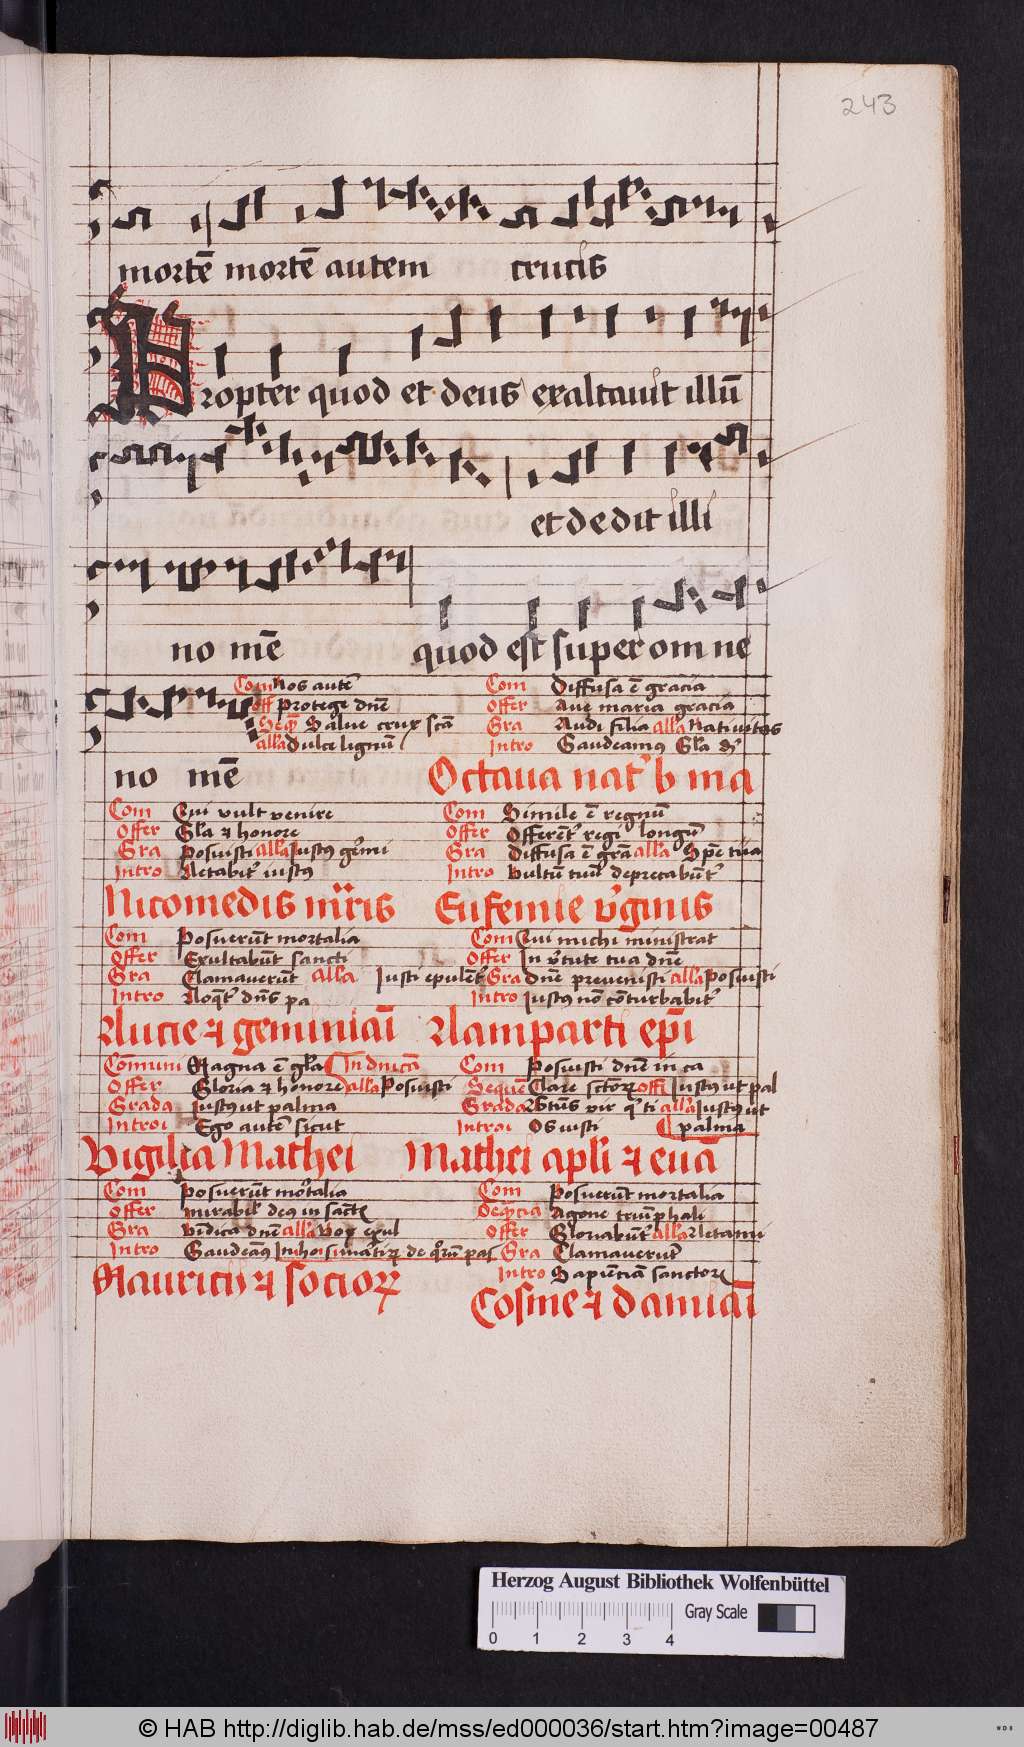 243
mortē mortē autem crucis
Propter quod et deus exaltauit illū
et dedit illi
no mē quod est super om ne
Com Nos autē
off Protege dnē
Seqʒ Salue crux scā
alla Dulce lignū
no mē
Com Diffusa ē gracia
Offer Aue maria gracia
Gra Audi filia alla Natiuitas
Intro Gaudeamus
Octaua nat' b ma
Com Qui vult venire
Offer Gla et honore
Gra Posuisti alla Justus
Intro Letabit' iustus
Nicomedis mr̄is
Com Simile ē regnū
Offer Offerēt' regi longū
Gra Diffusa ē grā alla Spē tua
Intro Vultū tuū deprecabūt'
Eufemie v'ginis
Com Posuerūt mortalia
Offer Exultabūt sancti
Gra Clamauerūt alla Justi epulēt'
Intro Loqt' dns pa
Lucie et geminiai
Com Qui michi ministrat
Offer In v'tute tua dnē
Gra dnē preuenisti alla Posuisti
Intro Justus nō cōturbabit'
Lamparti epi
Cōmuni Magna ē gla In dnica
Offer Gloria et honore alla Posuisti
Grada Justus ut palma
Introi Ego autē sicut
Vigilia Mathei
Com Posuisti dnē in ca
Sequē Clare sctorꝝ offi Justus ut pal
Grada alla Justus ut
Introi Os iusti palma
Mathei apli et euā
Com Posuerūt mortalia
Offer mirabil' deus in
Gra Vīdica dnē alla Vox exul
Intro Gaudeamus
Mauricii et sociorꝝ
Com Posuerūt mortalia
Agone triūphali
Offer Gloriabūt' alla Letamī
Gra Clamauerūt
Intro Sapiēciam sanctorꝝ
Cosme et damiai
Herzog August Bibliothek Wolfenbüttel
Gray Scale
0 1 2 3 4
© HAB http://diglib.hab.de/mss/ed000036/start.htm?image=00487